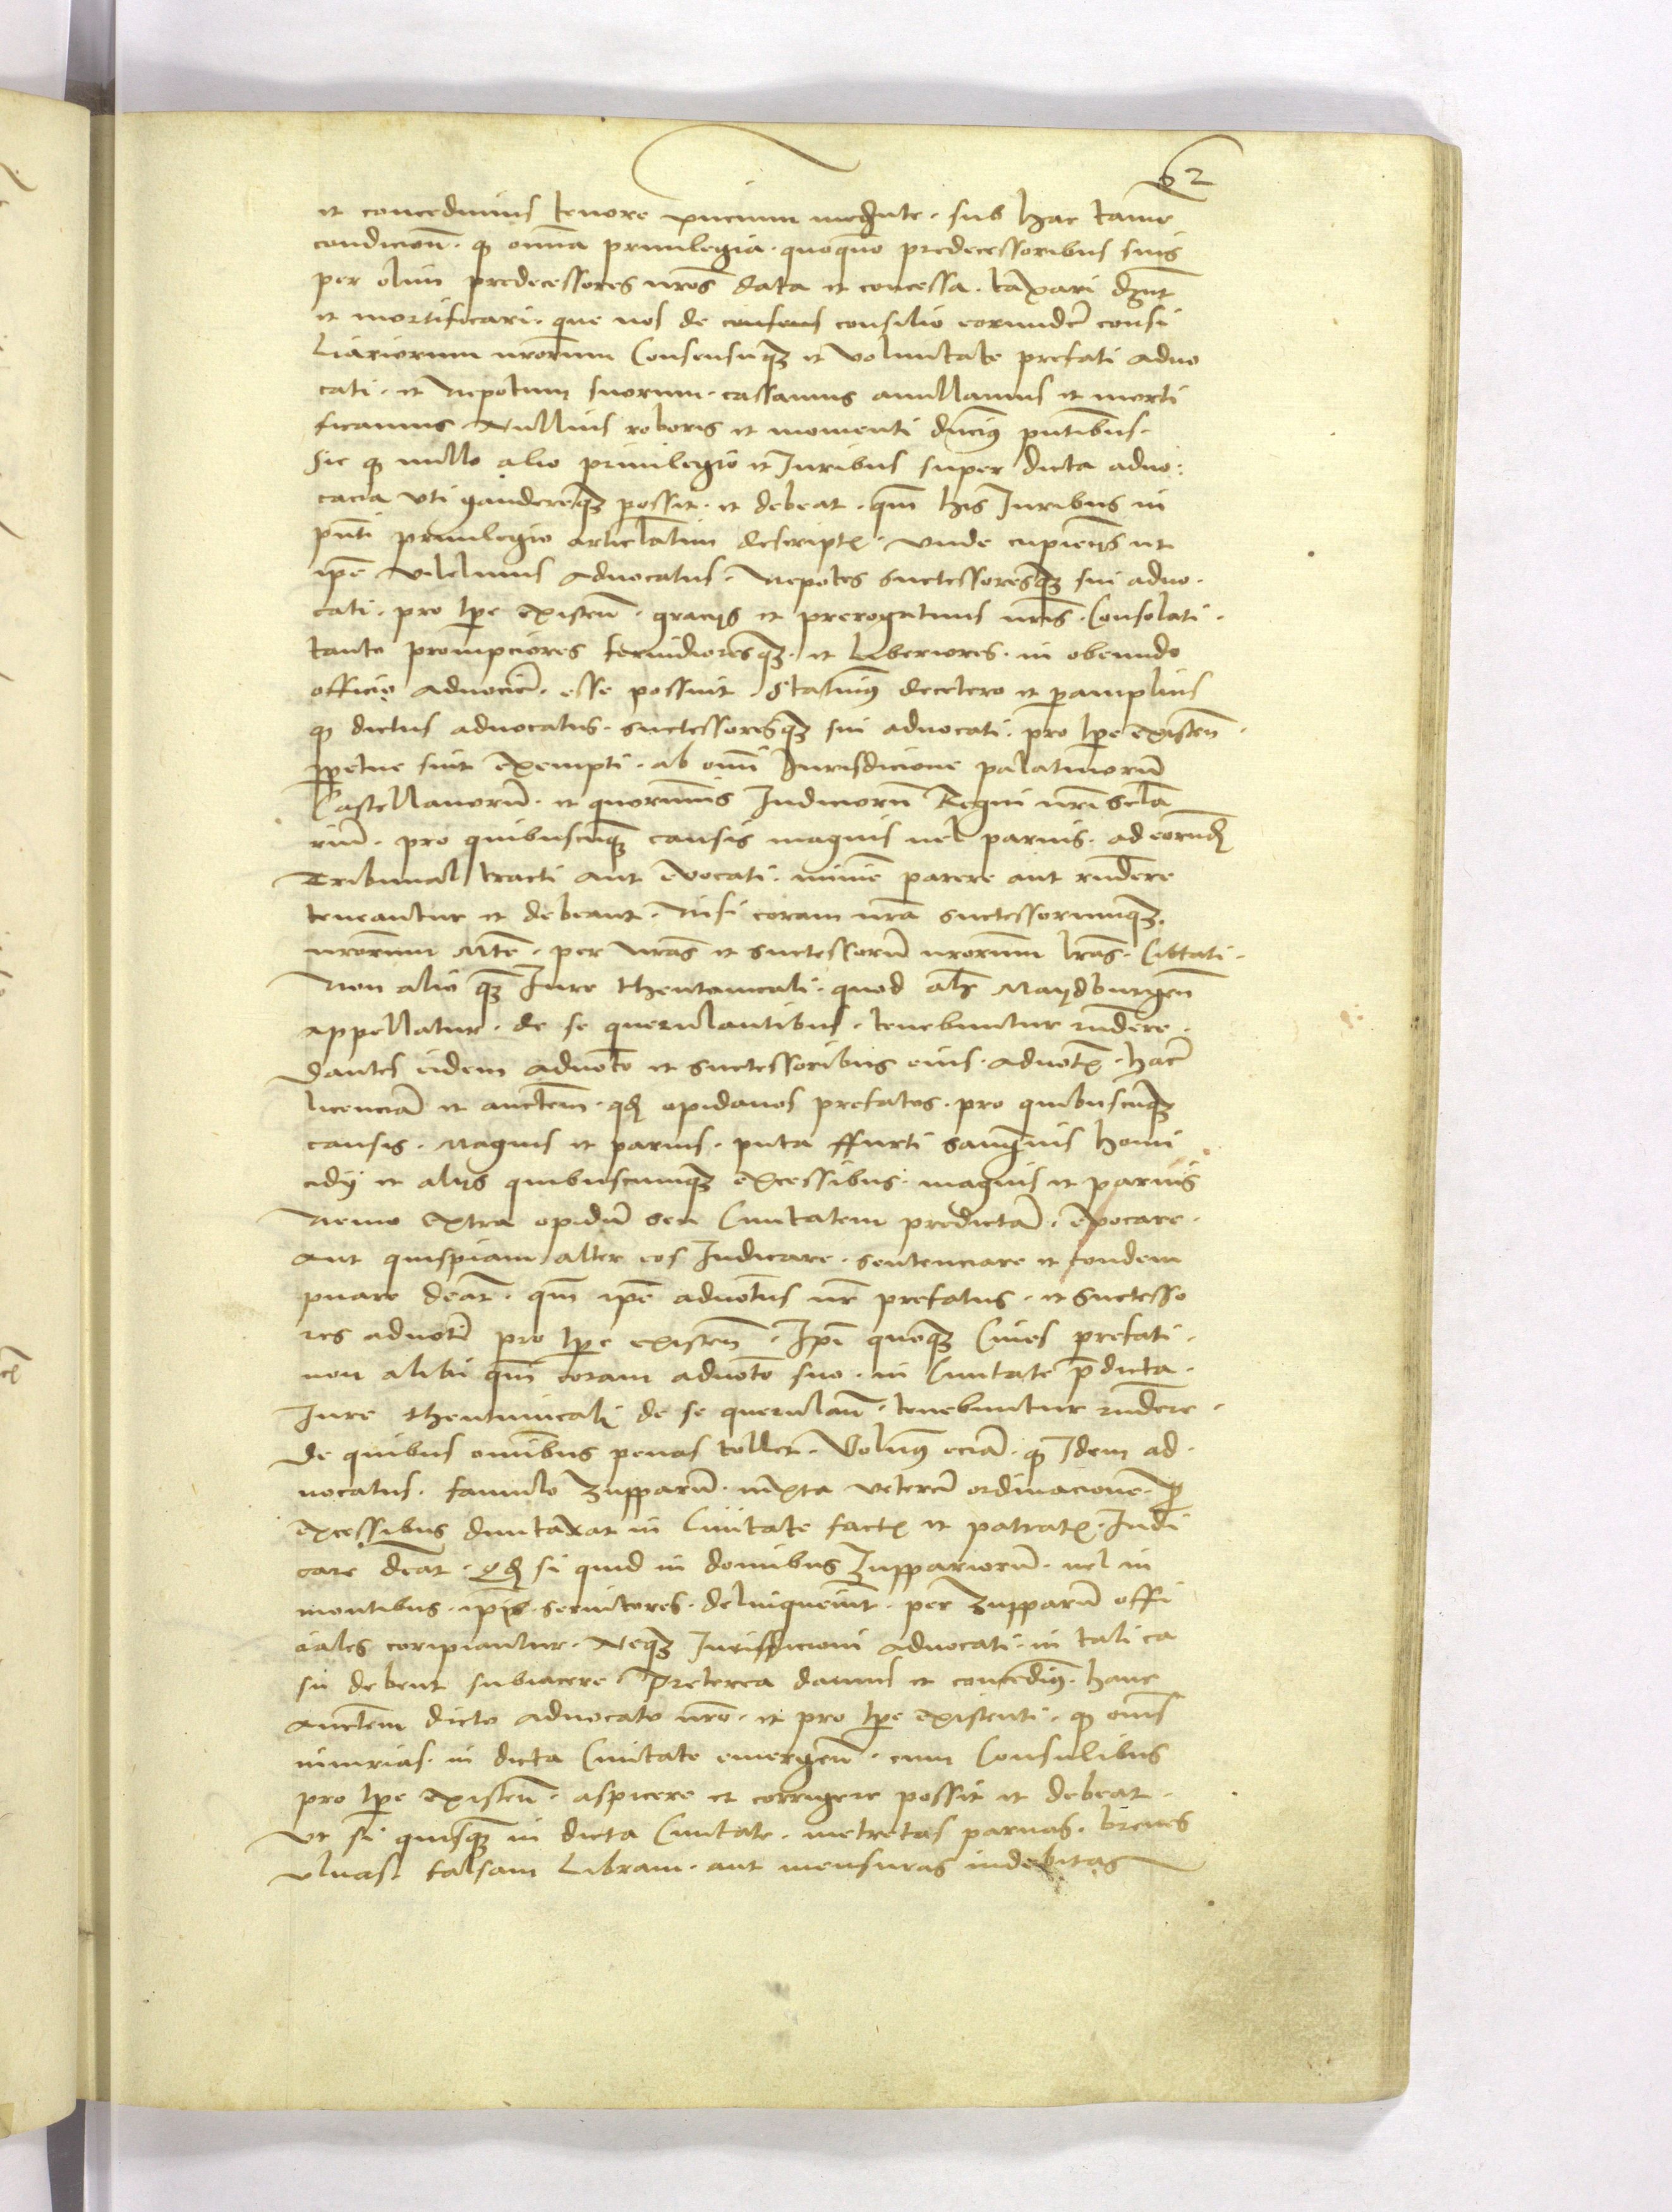 62
et concedimus tenore pncium medięnte · sub hac tamē
condicioñ · q̨ omīa priuilegia · quoquo predecessoribus suis
per olim predecessores nr̄os data et concessa · taxari dn̄t
et mortificari · que nos de consens consilio eorundē consi
liariorum nr̄orum Consensuq̨ et voluntate prefati aduo
cati · et Nepotum suorum · cassamus anullamus et morti
ficamus · Nullius roboris et momenti ducim⁹ pn̄tibus ·
Sic q̨ nullo alio priuilegio et Juribus super dicta aduo:
cacia vti gaudereq̨ possit · et debeat · qm̄ his Juribus in
pn̄ti priuilegio articlatim descriptꝭ · Vnde cupientes vt
ip̄e Vilelmus Aduocatus · Nepotes Successoresq̨ sui aduo·
cati · pro tpe existen̄ · gracijs et prerogatiuis nr̄is · Consolati ·
tanto prompciores feruidioresq̨ · et Liberiores · in obeundo
officio aduocie · esse possint · Statuim⁹ decetero et peramplius
q̨ dictus aduocatus · Successoresq̨ sui aduocati · pro tpe existen̄ ·
ꝑpetue sint exempti · ab omī Jurisdicione palatinorū
Castellanorū · et quorumuis Judicorū Regni nr̄i Scla
rium̄ · pro quibuscūq̨ causis magnis uel paruis · ad eorundꝭ
Tribunal tracti aut euocati · minime parere aut rn̄dere
teneantur et debeant · Nisi coram nr̄a Successorumq̨
nr̄orum Mte · per Nr̄as et Successorū nr̄orum lr̄as · Cittati ·
Non alio q̨ Jure theutonicali · quod als Maydburgen̄
appellatur · de se querulantibus · tenebuntur rn̄dere ·
Dantes eidem aduoto et Successoribus eius · aduotꝭ · hac̄
licenciā et auctem · qđ opidanos prefatos · pro quibuscūq̨
causis · Magnis et paruis · puta ffurti Sangnis homi
cidij et alijs quibuscumq̨ excessibus · magnis et paruis
Nemo extra opidū seu Ciuitatem predictā · euocare ·
aut quispiam alter eos Judicare · sentenciare et condem
pnare deāt · qm̄ ip̄e aduotus nr̄ prefatus · et Successo
res aduoti pro tpe existen̄ · Ip̄i quoq̨ Ciues prefati ·
non alibi qm̄ coram aduoto suo · in Ciuitate p̄dicta ·
Jure theutunicali de se querulan̄ · tenebuntur rn̄dere ·
De quibus omībus penas tollet · Volum⁹ eciā · q̨ Idem ad·
uocatus · famulo Zupparū · iuxta veterē ordinacione · p̱
excessibus dumtaxat in Ciuitate factꝭ et patratꝭ · Judi
care deāt · Qđ si quid in domibus Zuppariorū · uel in
montibus · ip̄is · seruitores · delinquerint · per Zupparū offi
ciales coripiantur · Neq̨ Jurisdicioni aduocati · in tali ca
su debent subiacere Preterea damus et concedim⁹ · hanc
Auctem dicto aduocato nr̄o · et pro tpe existenti · q̨ omēs
iniurias · in dicta Ciuitate emergen̄ · cum Consulibus
pro tpe existen̄ · aspicere et corrigere possit et debeat ·
Vt si quisq̨ in dicta Ciuitate · metretas paruas · breues
vlnas · falsam Libram · aut mensuras indebitas